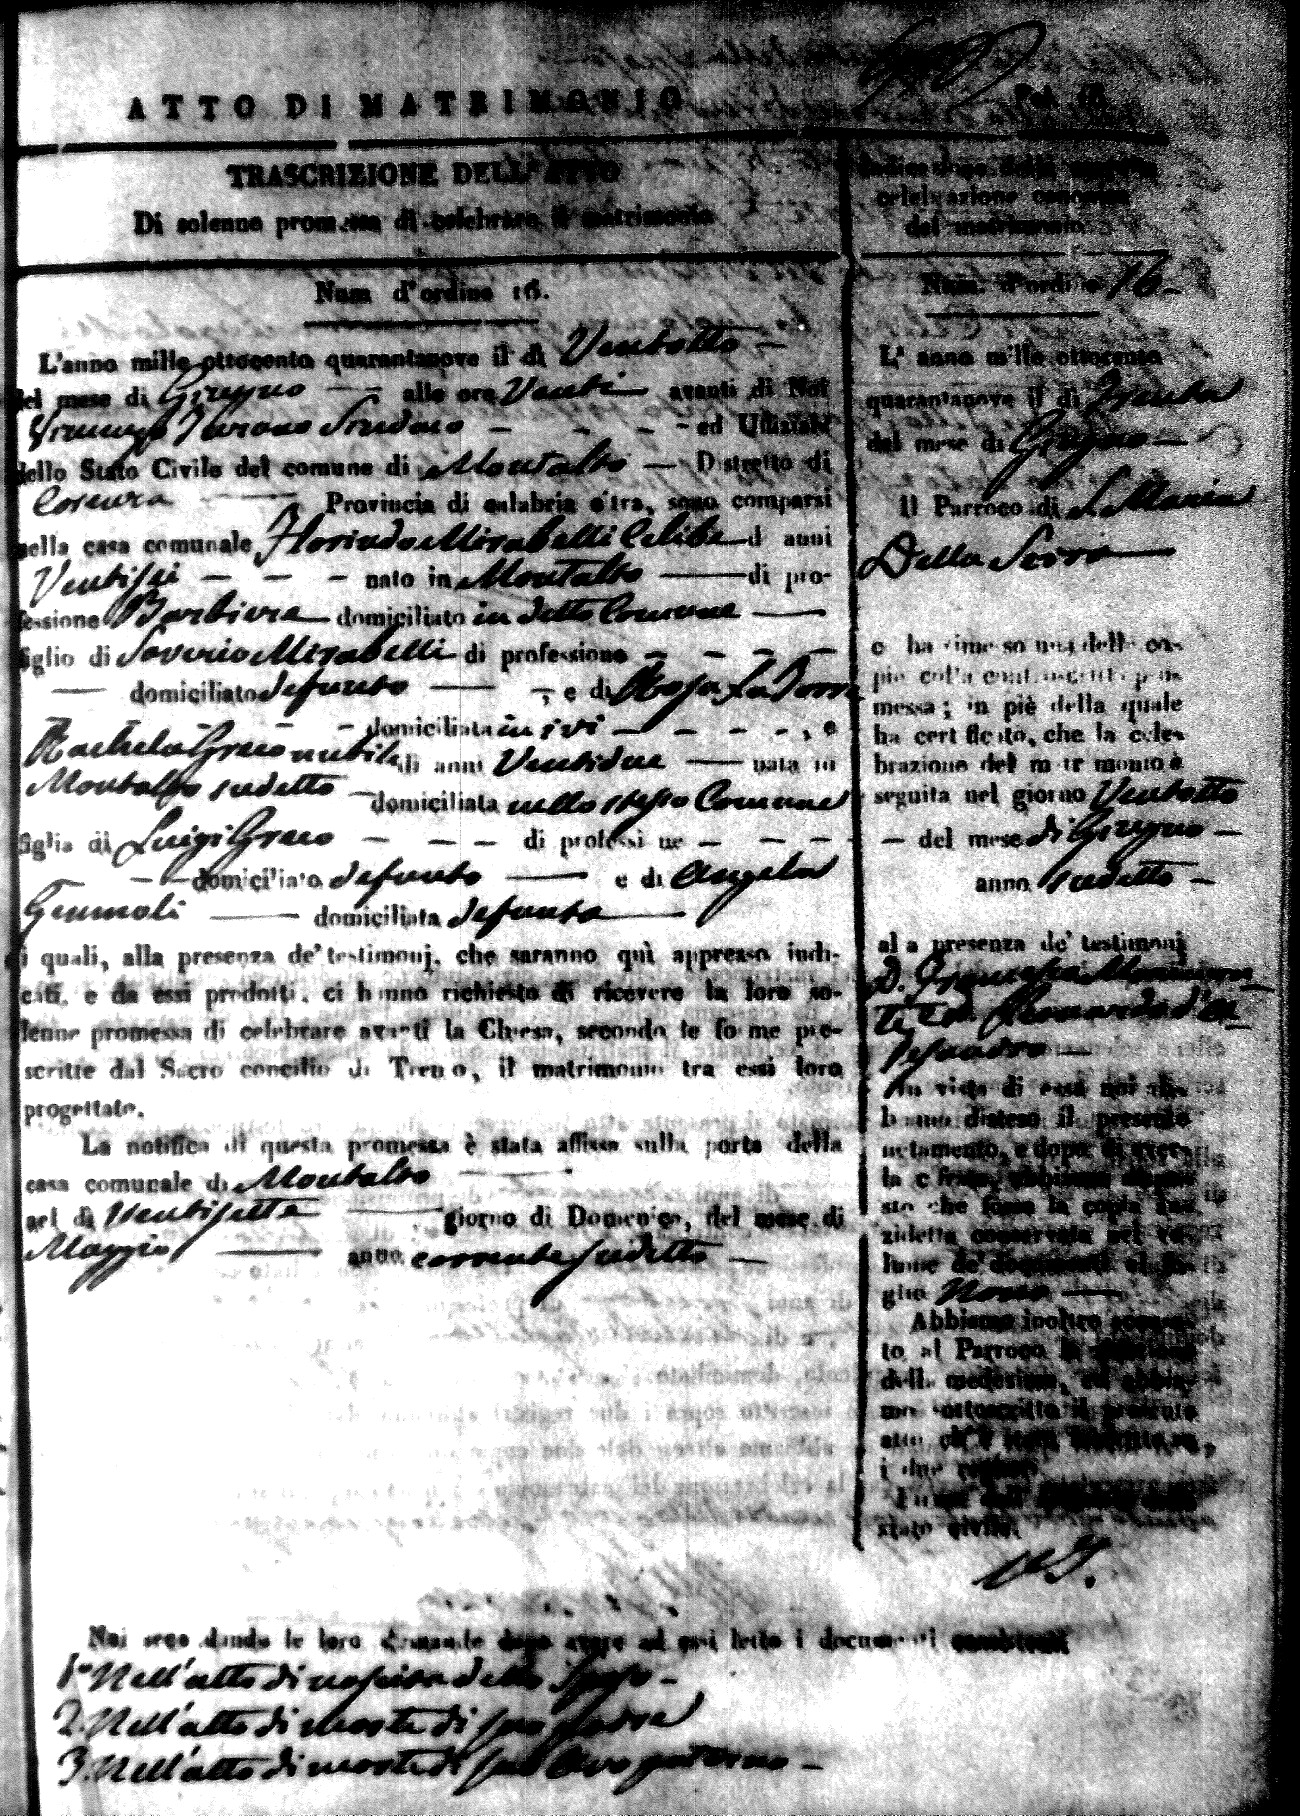 ATTO DI MATRIMONIO
TRASCRIZIONE DELL' ATTO
Di solenne promessa di celebrare il matrimonio
Num d'ordine 16.
L'anno mille ottocento quarantanove il dì Ventotto —
del mese di Giugno — alle ore Venti avanti di Noi
Sindaco — ed Uffiziale
dello Stato Civile del comune di Montalto — Distretto di
Cosenza — Provincia di calabria citra, sono comparsi
nella casa comunale Florindo Mirabelli Celibe d anni
Ventisei — nato in Montalto — di pro-
fessione Barbiere domiciliato in detto Comune —
figlio di Saverio Mirabelli di professione —
— domiciliato defunto —, e di Rosa La Torre
— domiciliata in ivi —, e
Rachela Greco nubile di anni Ventidue — nata in
Montalto sudetto — domiciliata nello stesso Comune
figlia di Luigi Greco — di professi ne —
— domiciliato defunto — e di Angela
domiciliata defunta —
i quali, alla presenza de' testimonj, che saranno quì appresso indi-
cati, e da essi prodotti, ci hanno richiesto di ricevere la loro so-
lenne promessa di celebrare avanti la Chiesa, secondo le forme pre-
scritte dal Sacro concilio di Trento, il matrimonio tra essi loro
progettato.
La notifica di questa promessa è stata affissa sulla porta della
casa comunale di Montalto —
nel dì Ventisette — giorno di Domenica, del mese di
Maggio — anno corrente sudetto —
celebrazione canonica
del matrimonio
Num. d'ordine 16-
L' anno mille ottocento
quarantanove il dì Trenta
del mese di Giugno —
Il Parroco di S. Maria
Della Serra —
ci ha rimesso una delle co-
pie colla controscritta pro-
messa; in piè della quale
ha certificato, che la cele-
brazione del matrimonio è
seguita nel giorno Ventotto
— del mese di Giugno —
anno sudetto —
alla presenza de' testimonj
In vista di essa noi ab-
biamo disteso il presente
notamento, e dopo di aver-
la cifrata, abbiamo dispo-
sto che fosse la copia an-
zidetta conservata nel vo-
lume de' documenti al fo-
glio Nono —
Abbiamo inoltre accusa-
to al Parroco la ricezione
della medesima, ed abbia-
mo sottoscritto il presente
atto, ch' è stato inscritto su
i due registri
stato civile.
Noi secondando le loro domande dopo avere ad essi letto i documenti consistenti
1° Nell'atto di nascita dello Sposo —
2. Nell'atto di morte di suo padre
3. Nell'atto di morte di suo Avo paterno —